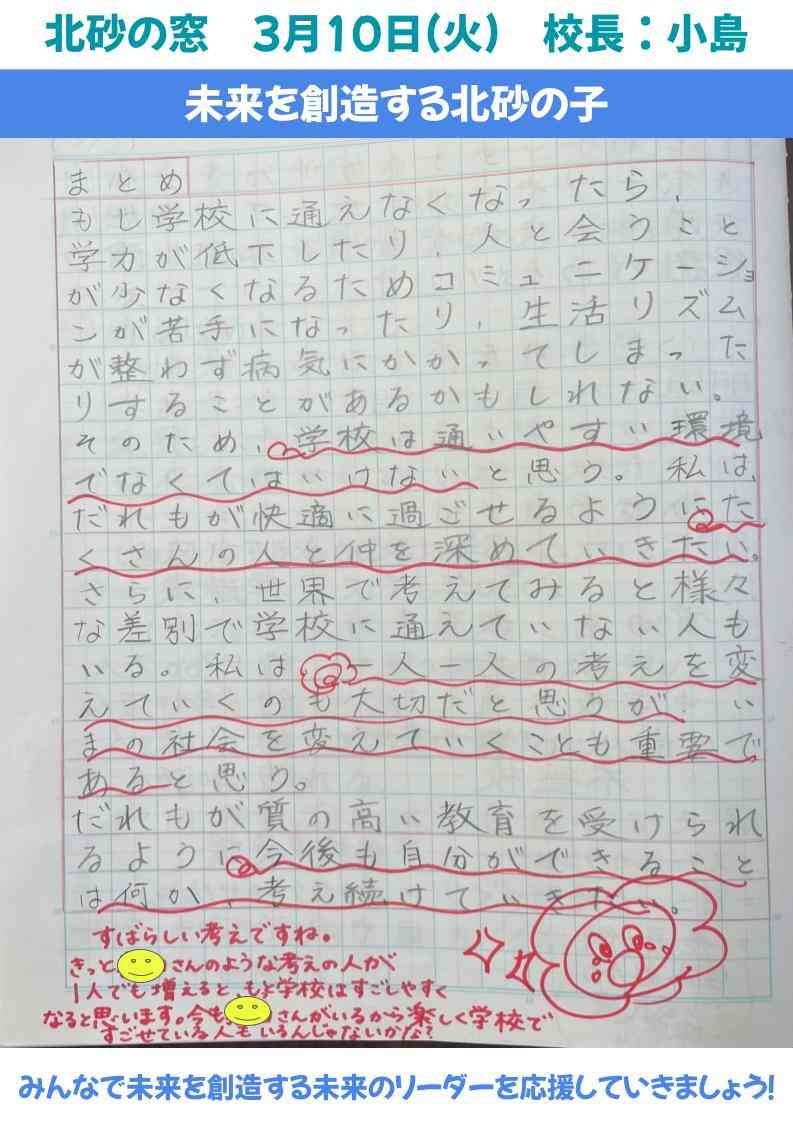 北砂の窓　3月10日(火)　校長：小島
未来を創造する北砂の子
まとめ
もし学校に通えなくなったら、
学力が低下したり、人と会うこと
が少なくなるためコミュニケーショ
ンが苦手になったり、生活リズム
が整わず病気にかかってしまった
りすることがあるかもしれない。
そのため、学校は通いやすい環境
でなくてはいけないと思う。私は、
だれもが快適に過ごせるようにた
くさんの人と仲を深めていきたい。
さらに、世界で考えてみると様々
な差別で学校に通えていない人も
いる。私は一人一人の考えを変
えていくのも大切だと思うが、い
まの社会を変えていくことも重要で
あると思う。
だれもが質の高い教育を受けられ
るように今後も自分ができること
は何か、考え続けていきたい。
すばらしい考えですね。
きっと さんのような考えの人が
1人でも増えると、もっと学校はすごしやすく
なると思います。今も、 さんがいるから楽しく学校で
すごせている人もいるんじゃないかな?
みんなで未来を創造する未来のリーダーを応援していきましょう!